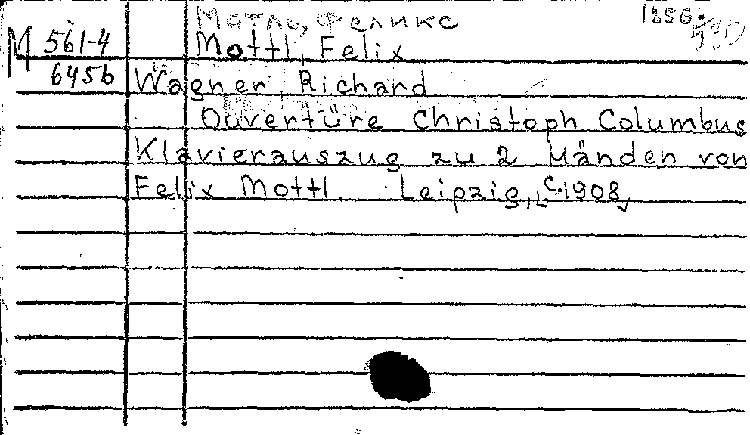 Мотль, Феликс
1856-
M 561-4 Mottl, Felix
645b Wagner, Richard
Ouvertüre Christoph Columbus
Klavierauszug zu 2 Händen von
Felix Mottl. Leipzig, c.1908,